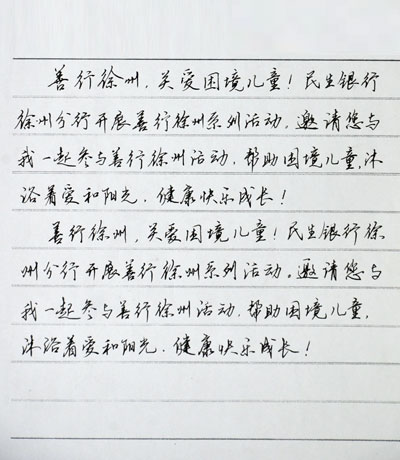 善行徐州，关爱困境儿童！民生银行
徐州分行开展善行徐州系列活动，邀请您与
我一起参与善行徐州活动，帮助困境儿童，沐
浴着爱和阳光，健康快乐成长！
善行徐州，关爱困境儿童！民生银行徐
州分行开展善行徐州系列活动。邀请您与
我一起参与善行徐州活动，帮助困境儿童，
沐浴着爱和阳光，健康快乐成长！